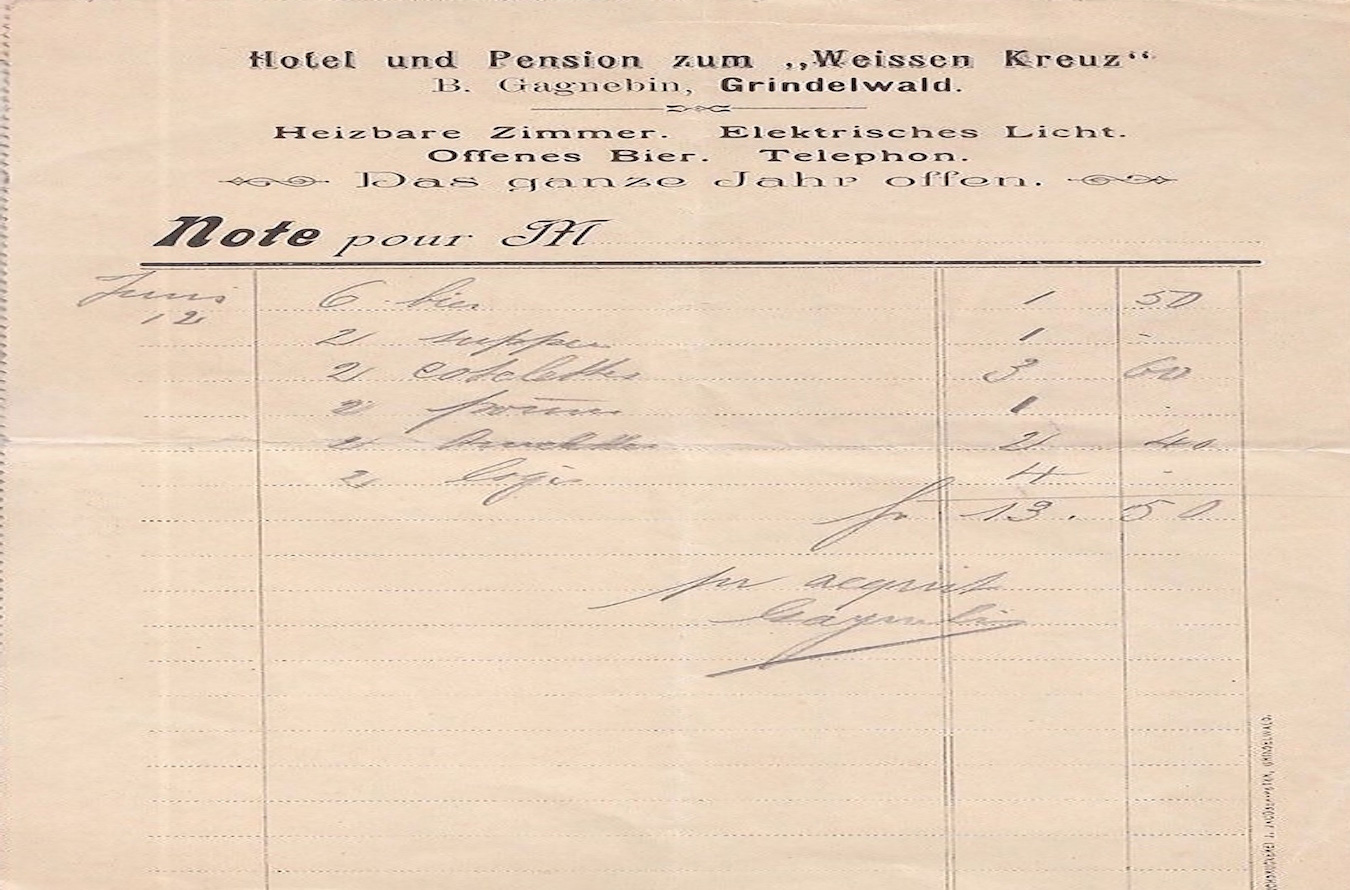 Hotel und Pension zum „Weissen Kreuz“
B. Gagnebin, Grindelwald.
Heizbare Zimmer. Elektrisches Licht.
Offenes Bier. Telephon.
Das ganze Jahr offen.
Note pour M
Juni 6 bier 1 50
12
2 suppen 1 -
2 cotelettes 3 60
2 1 -
2 2 40
2 logis 4 -
fr 13. 50
pr acquit
Gagnebin
GRINDELWALD.